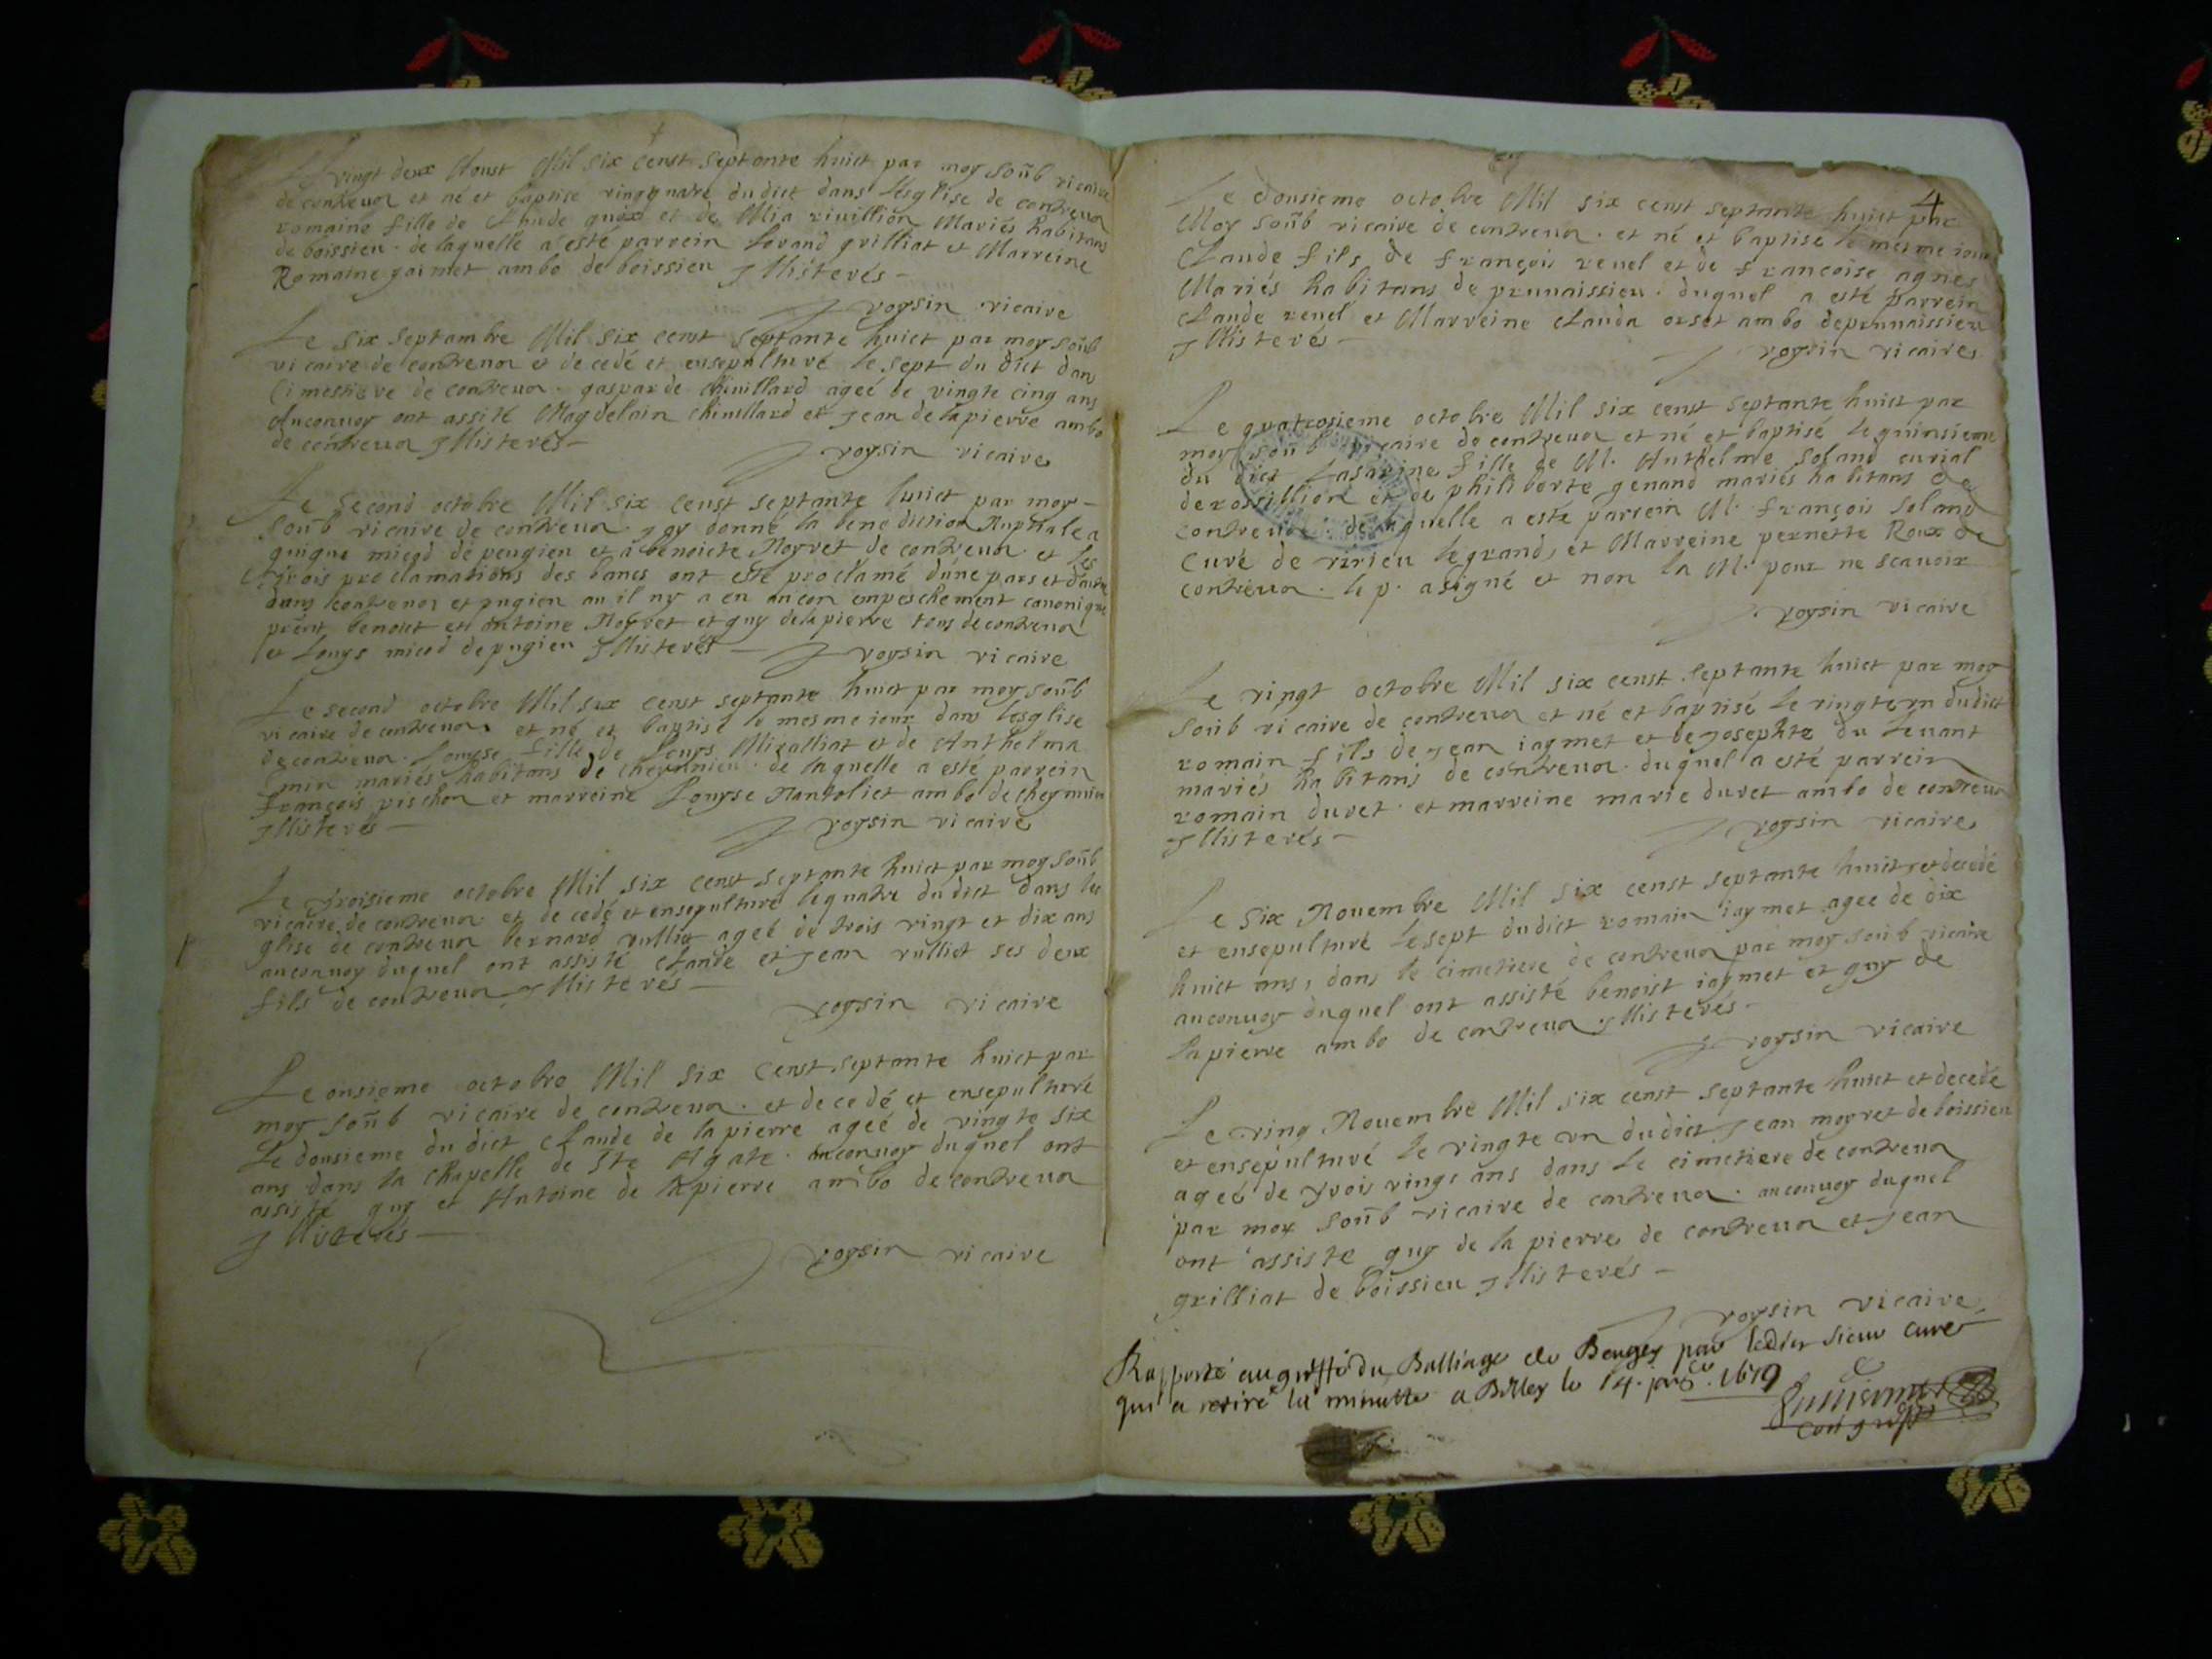 vingt deux Aoust Mil six censt septante huict par moy soub vicaire
de contreuoz et né et baptisé vingquatre du dict dans lesglise de contreuoz
romaine fille de Claude et de Mia Mariés habitans
de boissieu de laquelle a esté parrein grilliat et Marreine
Romaine jaimet ambo de boissieu Illisterés
voysin vicaire
Le six septambre Mil six censt septante huict par moy soub
vicaire de contreuoz et decedé et ensepulturé le sept du dict dans
Cimestiere de contreuoz gasparde Chiuillard ageé de vingte cinq ans
Auconuoy ont assité Magdelain chiuillard et Jean de lapierre ambo
de contreuoz Illisterés
voysin vicaire
Le second octobre Mil six censt septante huict par moy
soub vicaire de contreuoz Jay donné la benediction Nuptiale a
guigue micod de peugieu et a benoicte Moyret de contreuoz et les
trois proclamations des bancs ont esté proclamé dune pars et dautre
dans contreuoz et pugieu au il ny a eu aucon empeschement canonique
prent benoict et Antoine Moyret et guy delapierre tous de contreuoz
et Louys micod de pugieu Illisterés
voysin vicaire
Le second octobre Mil six censt septante huict par moy soub
vicaire de contreuoz et né et baptisé le mesme iour dans lesglise
de contreuoz Louyse fille de Louys Migalliat et de Anthelma
mariés habitans de cheyminieu de laquelle a esté parrein
françois pischon et marreine Louyse Nantoliet ambo de
Illisterés
voysin vicaire
Le troisieme octobre Mil six censt septante huict par moy soub
vicaire de contreuoz et decedé et ensepulturé le quatre du dict dans les
glise de contreuoz bernard rulliet ageé de trois vingt et dix ans
auconuoy duquel ont assisté claude et Jean rulliet ses deux
fils de contreuoz Illisterés
voysin vicaire
Le onsieme octobre Mil six Censt septante huict par
moy soub vicaire de contreuoz et decedé et ensepulturé
Le dousieme du dict Claude de lapierre ageé de vingte six
ans dans la chapelle de Ste Agate auconuoy duquel ont
assisté guy et Antoine de lapierre ambo de contreuoz
Illisterés
voysin vicaire
4
Le dousieme octobre Mil six censt septante huict par
Moy soub vicaire de contreuoz et né et baptisé le mesme iour
Claude fils de françois reuel et de francoise agnes
Mariés habitans de prunaissieu duquel a esté parrein
Claude reuel et Marreine Clauda orset ambo de prunaissieu
Illisterés
voysin vicaire
Le quatrosieme octobre Mil six censt septante huict par
moy soub vicaire de contreuoz et né et baptisé le quinsieme
du dict fille de M. Anthelme Soland curial
de rossillion et de philiberte genand mariés habitans de
contreuoz de laquelle a esté parrein M. françois Soland
Curé de virieu le grand, et Marreine pernette Roux de
contreuoz le p. a signé et non la M. pour ne scauoir
voysin vicaire
Le vingt octobre Mil six censt septante huict par moy
soub vicaire de contreuoz et né et baptisé le vingte vn du dict
romain fils de Jean iaymet et de Josephte du Leuant
mariés habitans de contreuoz duquel a esté parrein
romain duret et marreine marie duret ambo de contreuoz
Illisterés
voysin vicaire
Le six Nouembre Mil six censt septante huict et decedé
et ensepulturé le sept du dict romain iaymet ageé de dix
huict ans, dans le cimetiere de contreuoz par moy soub vicaire
auconuoy duquel ont assisté benoist iaymet et guy de
lapierre ambo de contreuoz Illisterés
voysin vicaire
Le ving Nouembre Mil six censt septante huict et decedé
et ensepulturé le vingte vn du dict Jean moyret de boissieu
ageé de trois vings ans dans le cimetiere de contreuoz
par moy soub vicaire de contreuoz auconuoy duquel
ont assisté guy de la pierre de contreuoz et Jean
grilliat de boissieu Illisterés
voysin vicaire
Rapporté au greffe du Balliage de Beugey par ledict sieur curé
qui a retiré la minutte a Belley le 14 1679